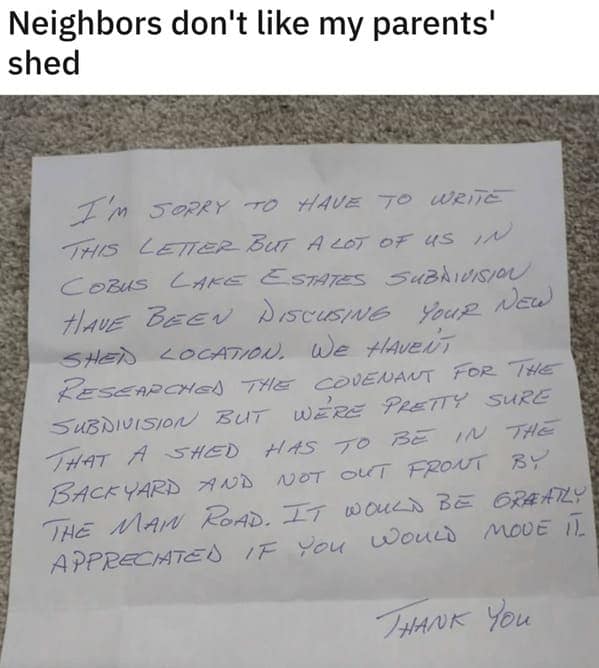 Neighbors don't like my parents'
shed
I'm SORRY TO HAVE TO WRITE
THIS LETTER BUT A LOT OF US IN
COBUS LAKE ESTATES SUBDIVISION
HAVE BEEN DISCUSING YOUR NEW
SHED LOCATION. WE HAVEN'T
RESEARCHED THE COVENANT FOR THE
SUBDIVISION BUT WE'RE PRETTY SURE
THAT A SHED HAS TO BE IN THE
BACKYARD AND NOT OUT FRONT BY
THE MAIN ROAD. IT WOULD BE GREATLY
APPRECIATED IF YOU WOULD MOVE IT
THANK YOU